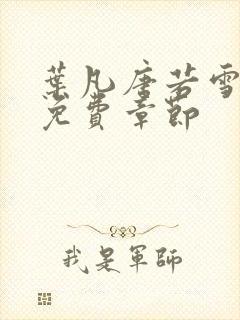 葉凡唐若雪
免費章節
我是軍師